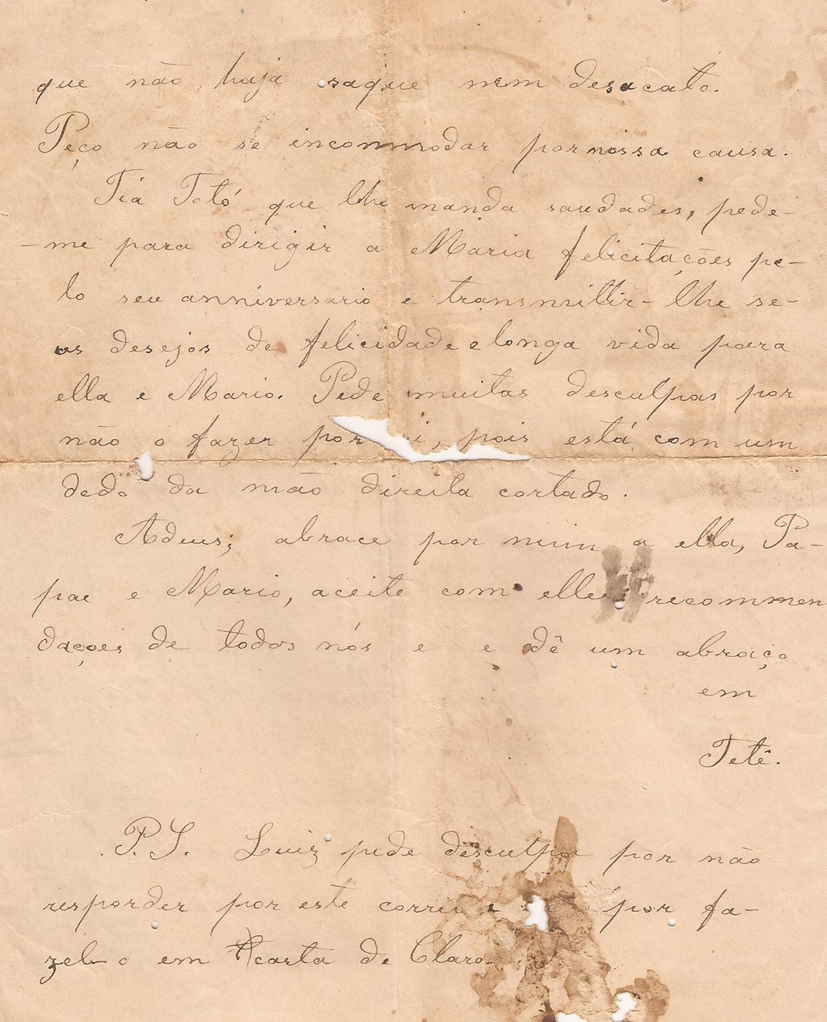 que não haja saque nem desacato.
Peço não se incommodar por nossa causa.
Tia Totó que lhe manda saudades, pede-
-me para dirigir a Maria felicitações pe-
lo seu anniversario e transmittir-lhe se-
us desejos de felicidade e longa vida para
ella e Mario. Pede muitas desculpas por
não o fazer por i, pois está com um
dedo da mão direita cortado.
Adeus; abrace por mim a ella, Pa-
pae e Mario, aceite com elles recommen
dações de todos nós e e dê um abraço
em
Tetê.
P.S. Luiz pede desculpa por não
responder por este correi e por fa-
zel-o em carta de Claro.